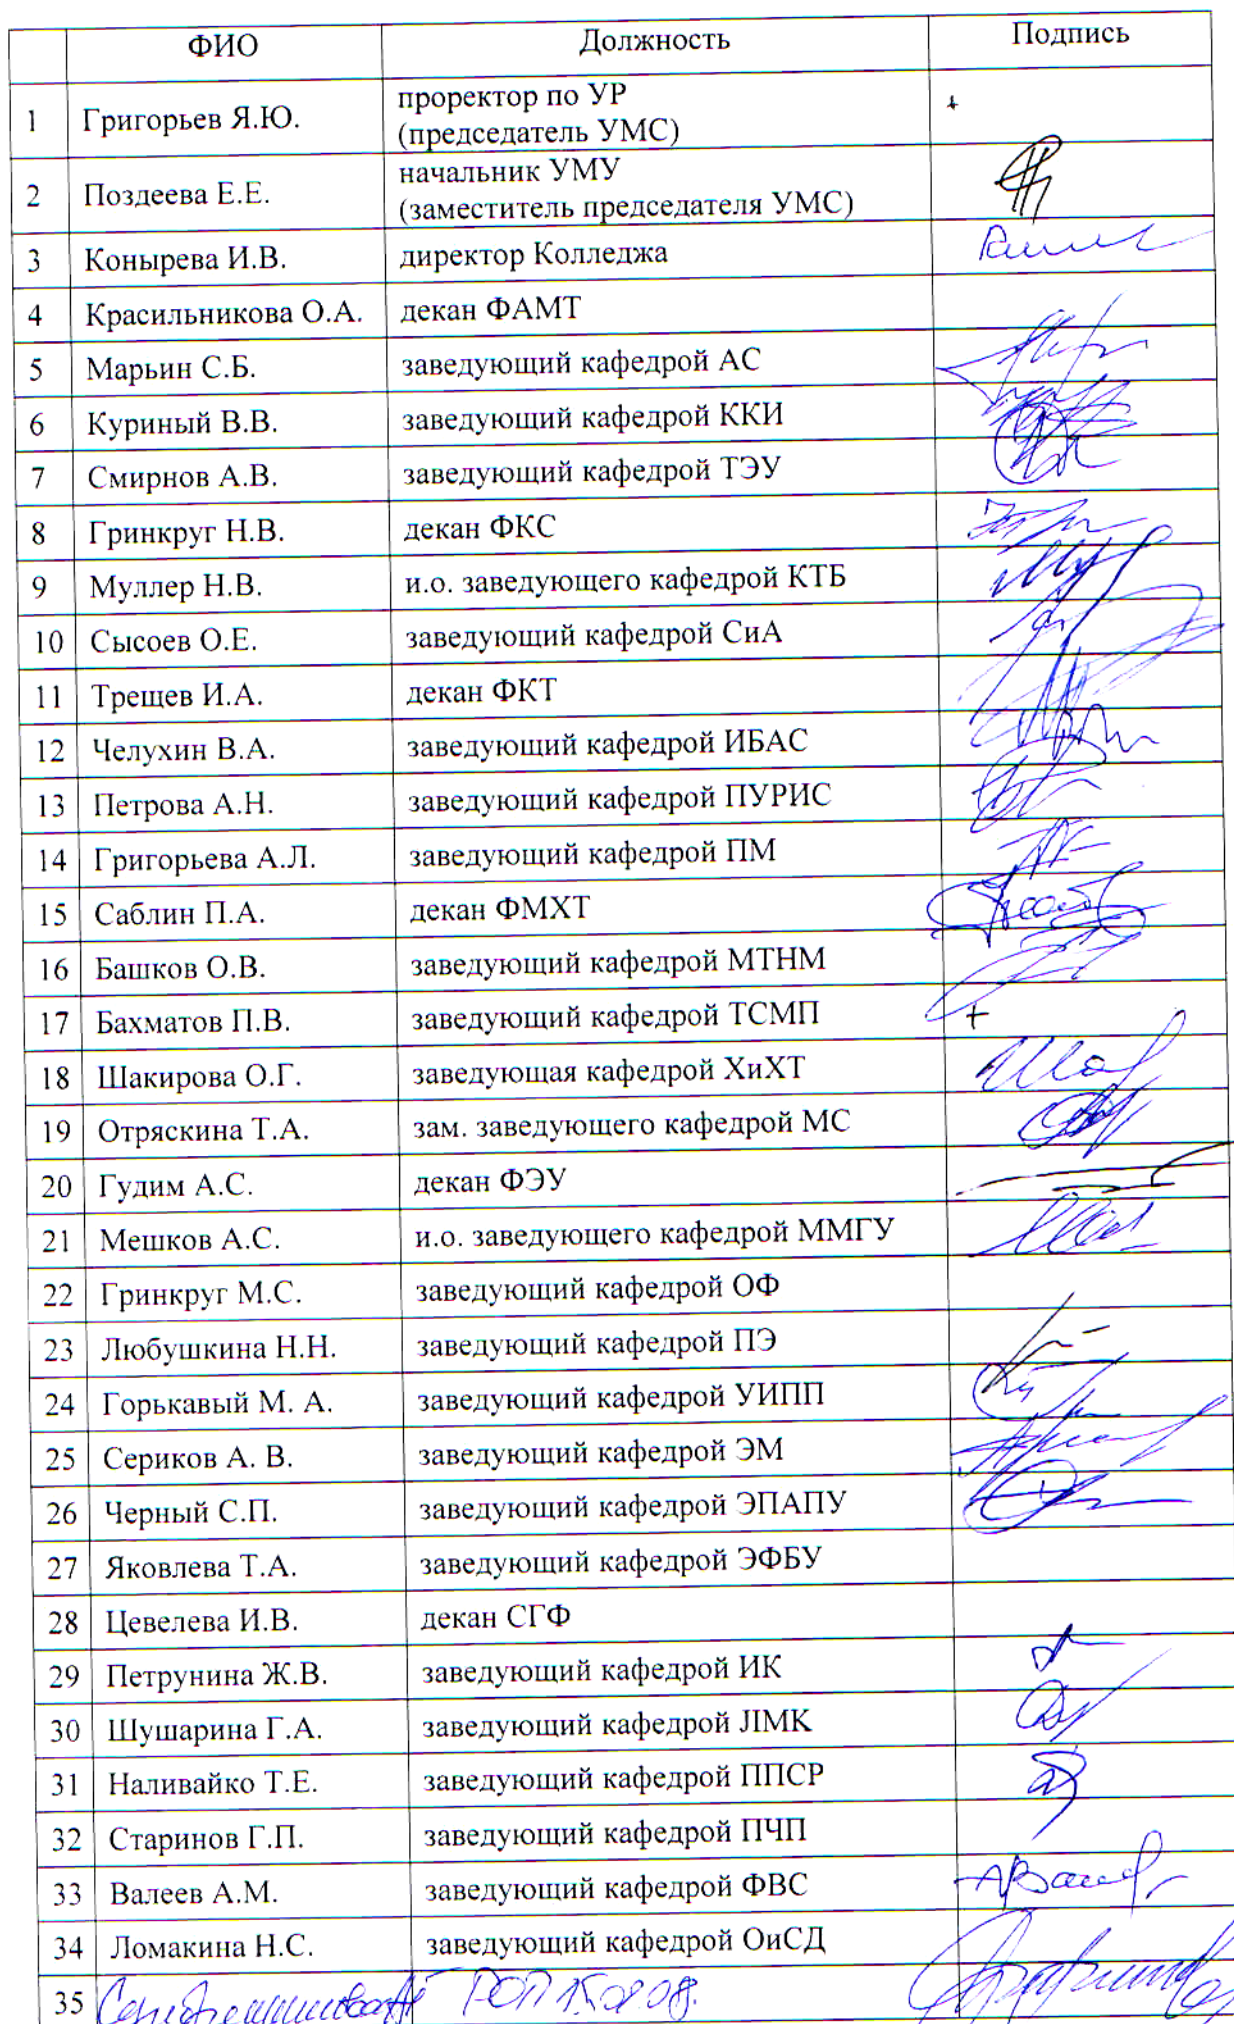 ФИО Должность Подпись
1 Григорьев Я.Ю. проректор по УР
(председатель УМС) +
2 Поздеева Е.Е. начальник УМУ
(заместитель председателя УМС)
3 Конырева И.В. директор Колледжа
4 Красильникова О.А. декан ФАМТ
5 Марьин С.Б. заведующий кафедрой АС
6 Куриный В.В. заведующий кафедрой ККИ
7 Смирнов А.В. заведующий кафедрой ТЭУ
8 Гринкруг Н.В. декан ФКС
9 Муллер Н.В. и.о. заведующего кафедрой КТБ
10 Сысоев О.Е. заведующий кафедрой СиА
11 Трещев И.А. декан ФКТ
12 Челухин В.А. заведующий кафедрой ИБАС
13 Петрова А.Н. заведующий кафедрой ПУРИС
14 Григорьева А.Л. заведующий кафедрой ПМ
15 Саблин П.А. декан ФМХТ
16 Башков О.В. заведующий кафедрой МТНМ
17 Бахматов П.В. заведующий кафедрой ТСМП +
18 Шакирова О.Г. заведующая кафедрой ХиХТ
19 Отряскина Т.А. зам. заведующего кафедрой МС
20 Гудим А.С. декан ФЭУ
21 Мешков А.С. и.о. заведующего кафедрой ММГУ
22 Гринкруг М.С. заведующий кафедрой ОФ
23 Любушкина Н.Н. заведующий кафедрой ПЭ
24 Горькавый М. А. заведующий кафедрой УИПП
25 Сериков А. В. заведующий кафедрой ЭМ
26 Черный С.П. заведующий кафедрой ЭПАПУ
27 Яковлева Т.А. заведующий кафедрой ЭФБУ
28 Цевелева И.В. декан СГФ
29 Петрунина Ж.В. заведующий кафедрой ИК
30 Шушарина Г.А. заведующий кафедрой JIMK
31 Наливайко Т.Е. заведующий кафедрой ППСР
32 Старинов Г.П. заведующий кафедрой ПЧП
33 Валеев А.М. заведующий кафедрой ФВС
34 Ломакина Н.С. заведующий кафедрой ОиСД
35 РОП 15.02.08.